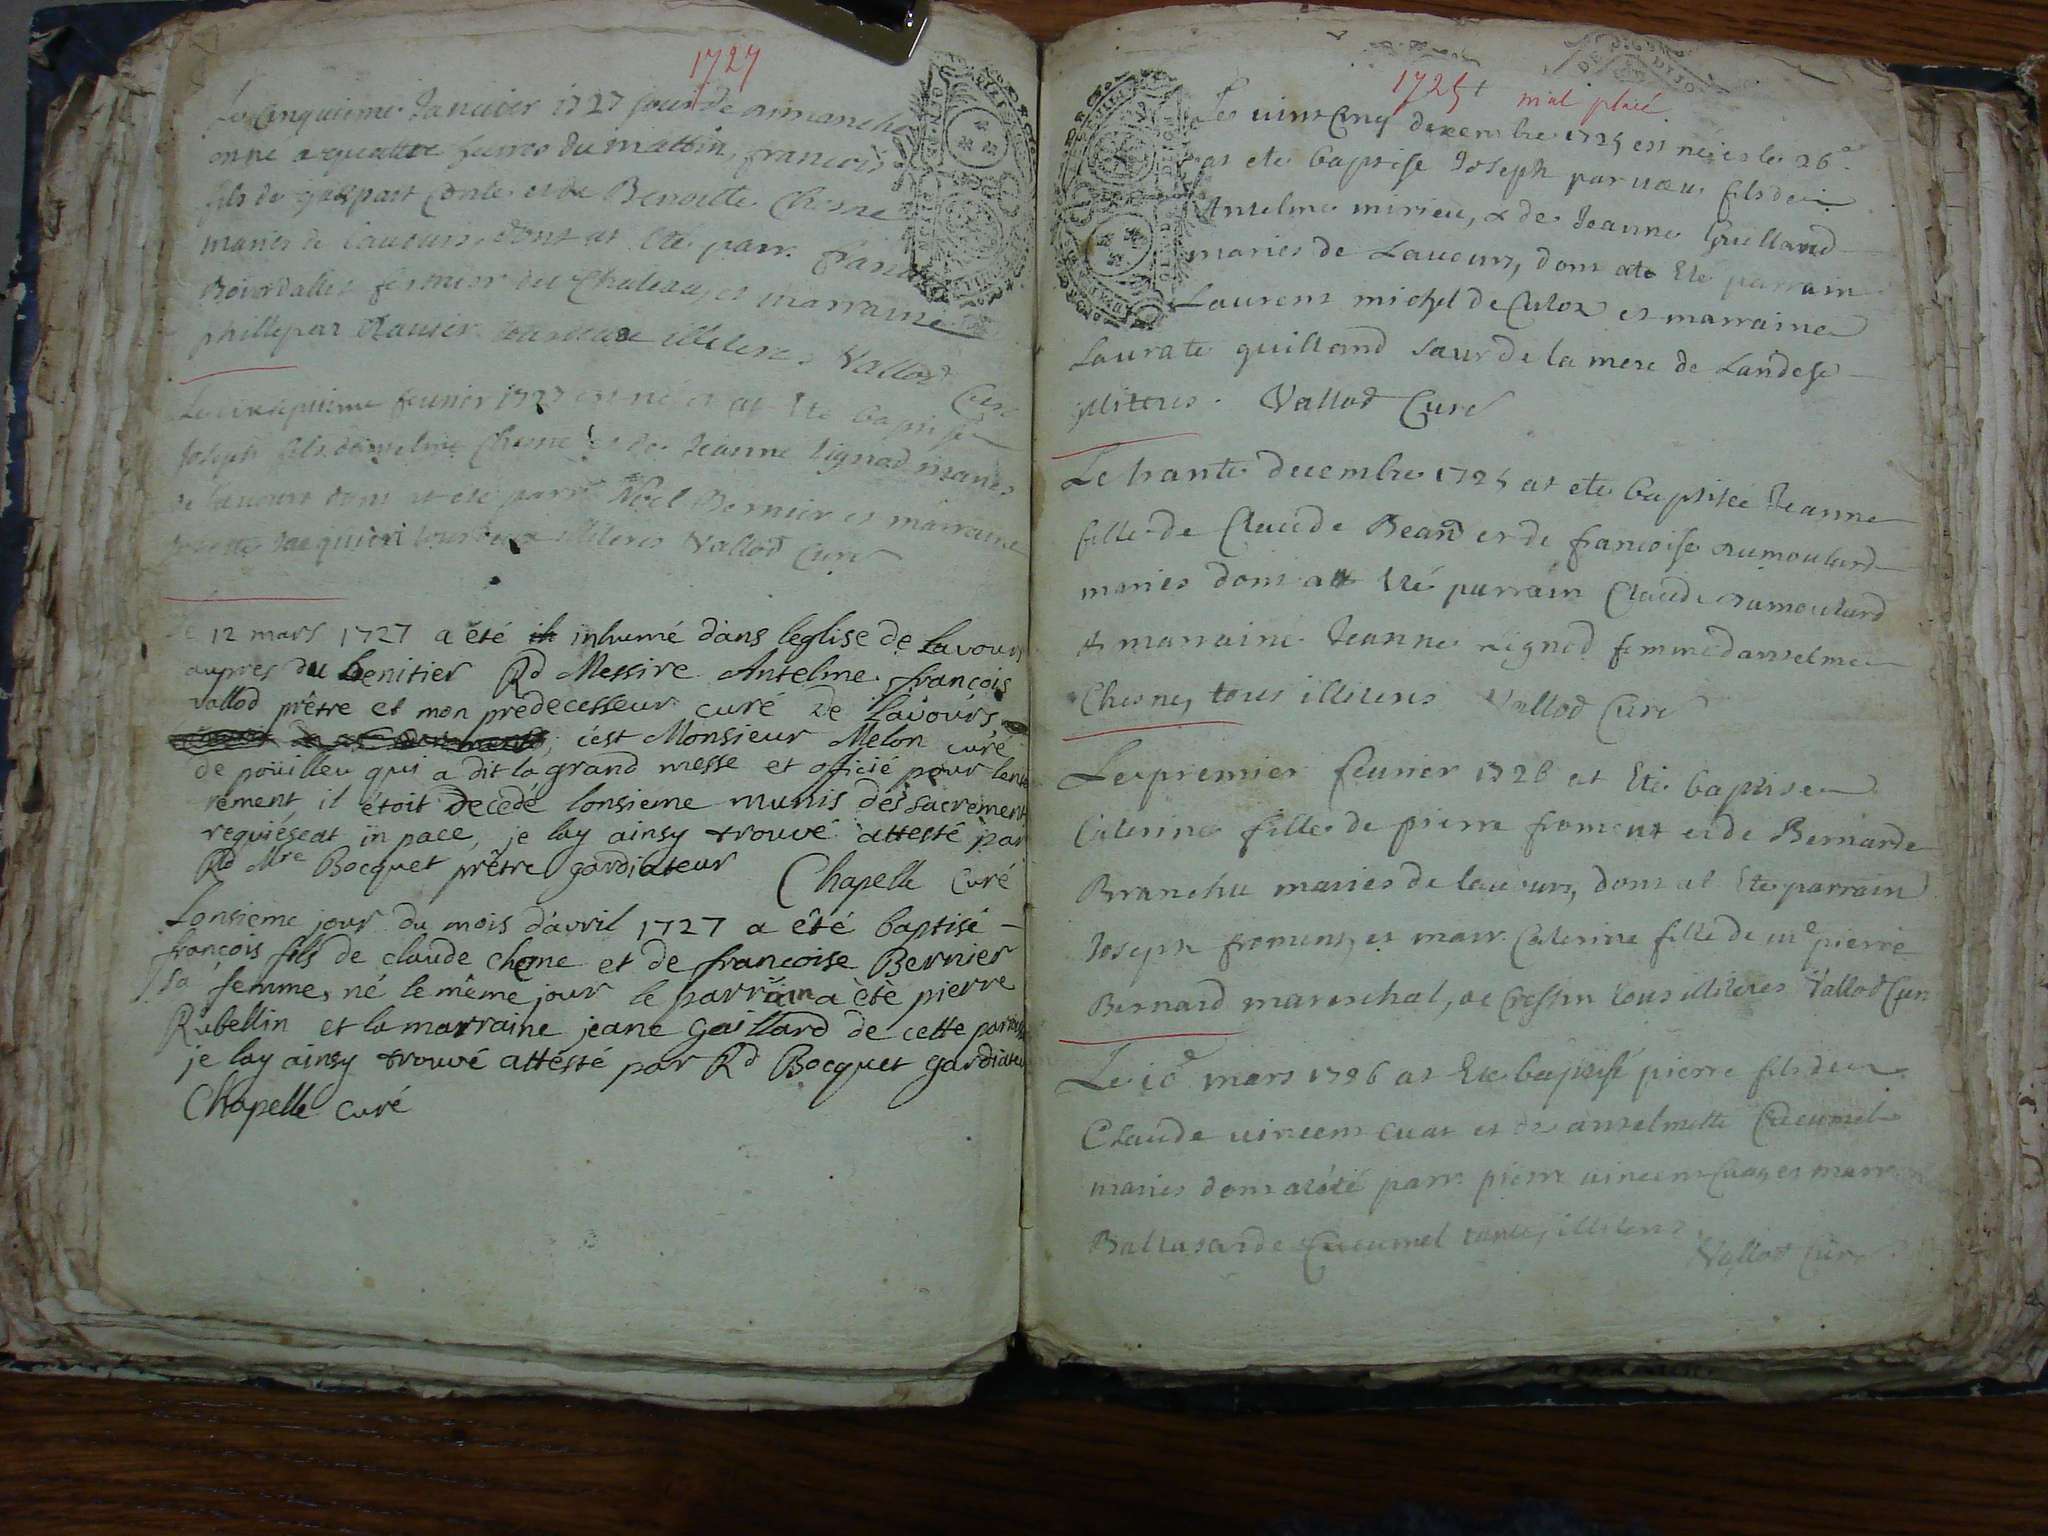 1727
Le Cinquieme Janvier 1727 jour de dimanche
onne a quattre heures du mattin, francois
fils de gaspart et de Benoitte Chesne
maries de Lavours, dont at Ete parr.
fermier du Chateau, et marraine
illiteres Vallod
Curé
fevrier 1727 est né et at Ete baptisé
Joseph fils Chesne et de Jeanne Lignod maries
de Lavours dont at ete parr. Bernier et marraine
illiteres Vallod Curé
12 mars 1727 a été inhumé dans leglise de Lavours
aupres du benitier Rd Messire Antelme françois
vallod prêtre et mon predecesseur curé de Lavours
c'est Monsieur Melon curé
de poüilleu qui a dit la grand messe et officié pour lente
rement il étoit decedé lonsieme munis des sacrement
requiescat in pace, je lay ainsy trouvé attesté par
Rd Mre Bocquet prêtre gardiateur Chapelle curé
Lonsieme jour du mois d'avril 1727 a été baptisé
françois fils de claude chene et de françoise Bernier
sa femme, né le même jour le parrain a été pierre
Rubellin et la marraine jeane Gaillard de cette paroisse
je lay ainsy trouvé attésté par Rd Bocquet gardiateu
Chapelle curé
1725 mal placé
Le vint Cinq dexembre 1725 est né, et le 26e
at ete baptise Joseph par vœu, fils de
Antelme mirieu, & de Jeanne Guilland
maries de Lavours, dont at Eté parrain
Laurent michel de Culoz et marraine
Laurate guilland sœur de la mere de Landese
illiteres. Vallod Curé
Le trante decembre 1725 at ete baptisée Jeanne
fille de Claude Beard et de francoise dumoulard
maries dont att Eté parrain Claude dumoulard
& marraine Jeanne Lignod femme d'antelme
Chesne, tous illiteres Vallod Curé
Le premier fevrier 1726 at Ete baptisee
Caterine fille de pierre froment et de Bernarde
Branchu maries de lavours, dont at Ete parrain
Joseph froment, et marr. Caterine fille de me pierre
Bernard mareschal, de Cressin tous illiteres Vallod Cure
Le 10e mars 1726 at Ete baptisé pierre fils de
Claude vincent cuat et de antelmette Cucumel
maries dont at été parr. pierre vincent et marr
Baltasarde Cucumel tante, illiteres
Vallod Curé